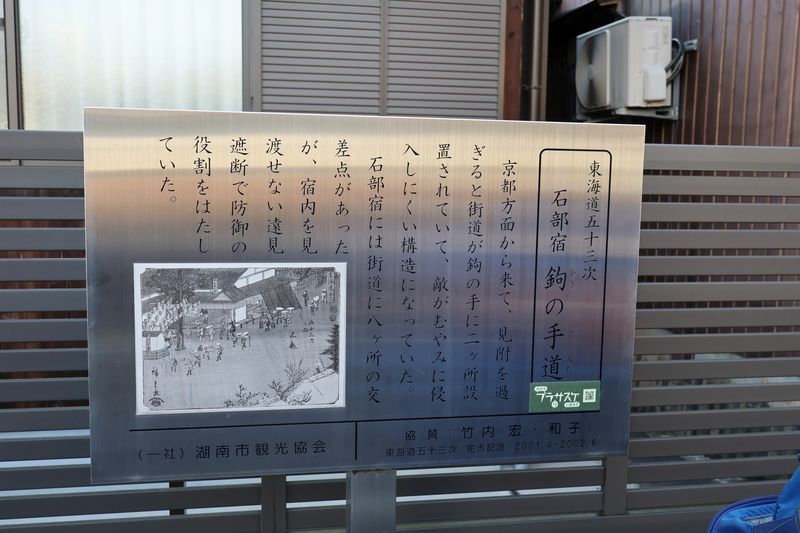 東海道五十三次
石部宿 鉤の手道
京都方面から来て、見附を過
ぎると街道が鉤の手に二ヶ所設
置されていて、敵がむやみに侵
入しにくい構造になっていた。
石部宿には街道に八ヶ所の交
差点があった
が、宿内を見
渡せない遠見
遮断で防御の
役割をはたし
ていた。
プラサスケ
協賛：竹内 宏・和子
東海道五十三次 完歩記念 2001.4~2002.6
(一社) 湖南市観光協会